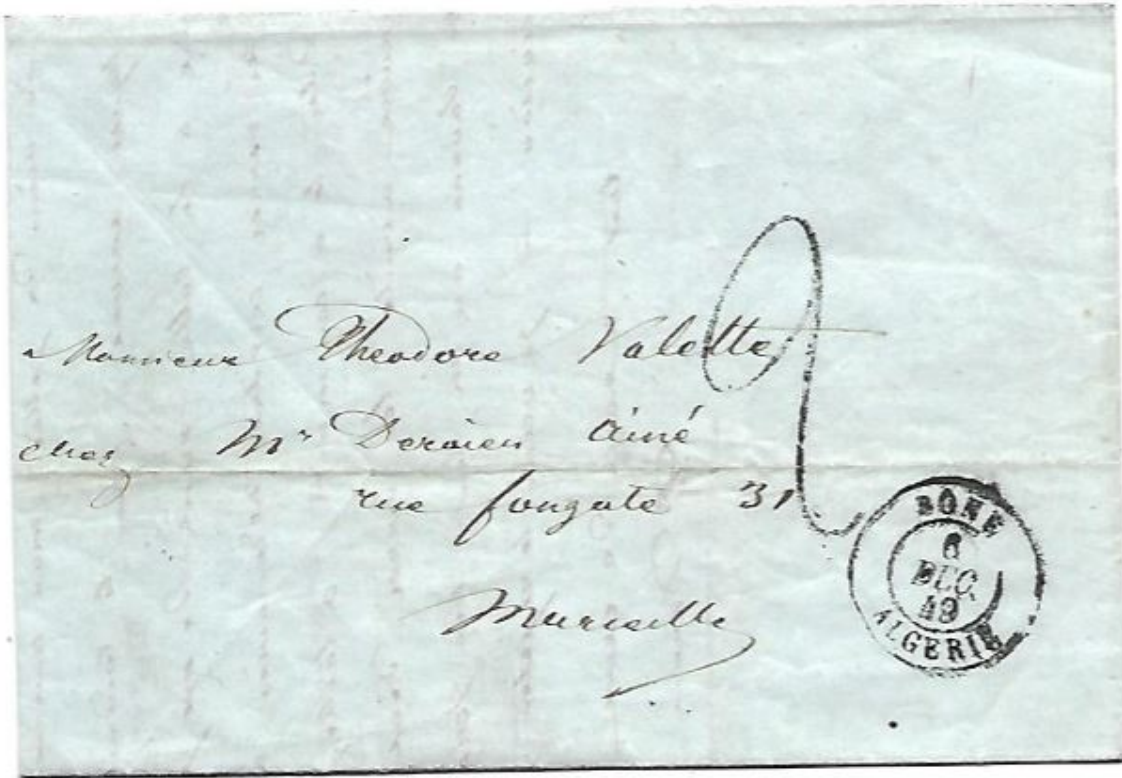 a Monsieur Theodore Valette
chez Mr Aîné
rue fongate 31
Marseille
2
BÔNE
6
DEC.
49
ALGERIE